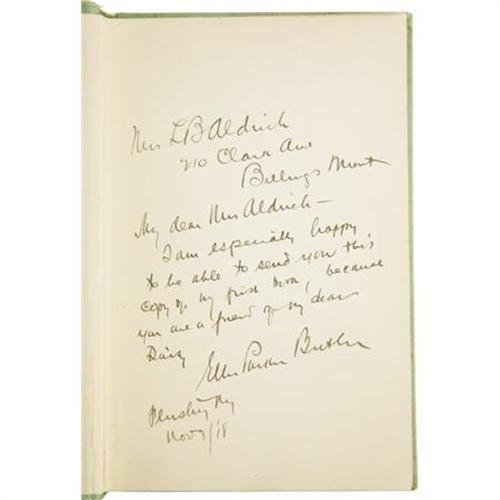 Mrs L B Aldrich
210 Clark Ave
Billings Mont
My dear Mrs Aldrich—
I am especially happy
to be able to send you this
copy of my first book, because
you are a friend of my dear
Daisy
Ellis Parker Butler
Flushing NY
Nov 7/18